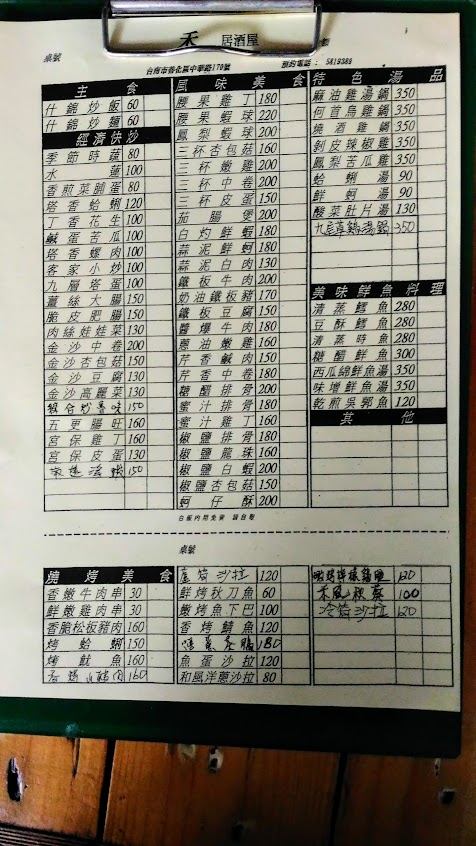 禾 居酒屋
桌號
台南市善化區中華路170號 預約電話： 5819389
主食
什錦炒飯 60
什錦炒麵 60
經濟快炒
季節時蔬 80
水蓮 100
香煎菜脯蛋 80
塔香蛤蜊 120
丁香花生 100
鹹蛋苦瓜 100
塔香螺肉 100
客家小炒 100
九層塔蛋 100
薑絲大腸 150
脆皮肥腸 150
肉絲娃娃菜 130
金沙中卷 200
金沙杏包菇 150
金沙豆腐 130
金沙高麗菜 130
150
五更腸旺 160
宮保雞丁 160
宮保皮蛋 130
150
風味美食
腰果雞丁 180
腰果蝦球 220
鳳梨蝦球 200
三杯杏包菇 160
三杯嫩雞 200
三杯中卷 200
三杯皮蛋 150
茄腸煲 200
白灼鮮蝦 180
蒜泥鮮蚵 180
蒜泥白肉 130
鐵板牛肉 200
奶油鐵板豬 170
鐵板豆腐 150
醬爆牛肉 180
蔥油嫩雞 160
芹香鹹肉 150
芹香中卷 180
糖醋排骨 200
蜜汁排骨 180
蜜汁雞丁 160
椒鹽排骨 180
椒鹽龍珠 160
椒鹽白蝦 200
椒鹽杏包菇 150
蚵仔酥 200
待色湯品
麻油雞湯鍋 350
何首烏雞鍋 350
燒酒雞鍋 350
剝皮辣椒雞 350
鳳梨苦瓜雞 350
蛤蜊湯 90
鮮蚵湯 90
酸菜肚片湯 130
350
美味鮮魚料理
清蒸鱈魚 280
豆酥鱈魚 280
清蒸時魚 280
糖醋鮮魚 300
西瓜綿鮮魚湯 350
味增鮮魚湯 350
乾煎吳郭魚 120
其他
白飯內用免費 請自取
桌號
燒烤美食
香嫩牛肉串 30
鮮嫩雞肉串 30
香脆松板豬肉 160
烤蛤蜊 150
烤魷魚 160
160
蘆筍沙拉 120
鮮烤秋刀魚 60
嫩烤魚下巴 100
香烤鯖魚 120
180
魚蛋沙拉 120
和風洋蔥沙拉 80
120
100
冷筍沙拉 120